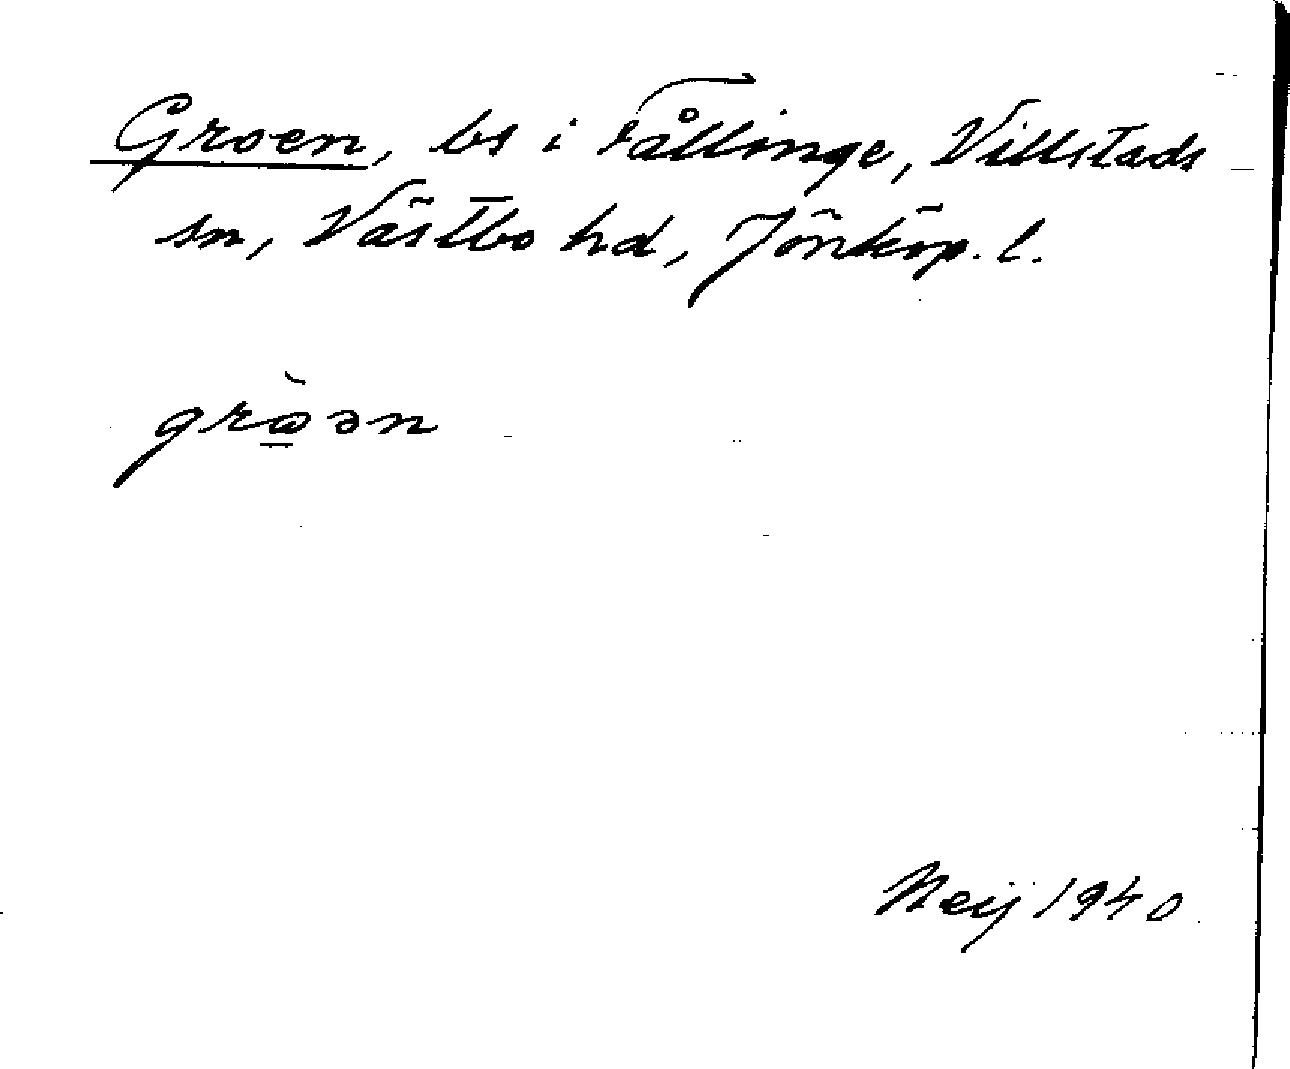 Groen, bs i Fållinge, Villstads
sn, Västbo hd, Jönköp. l.
grò̱ən
Neij 1940